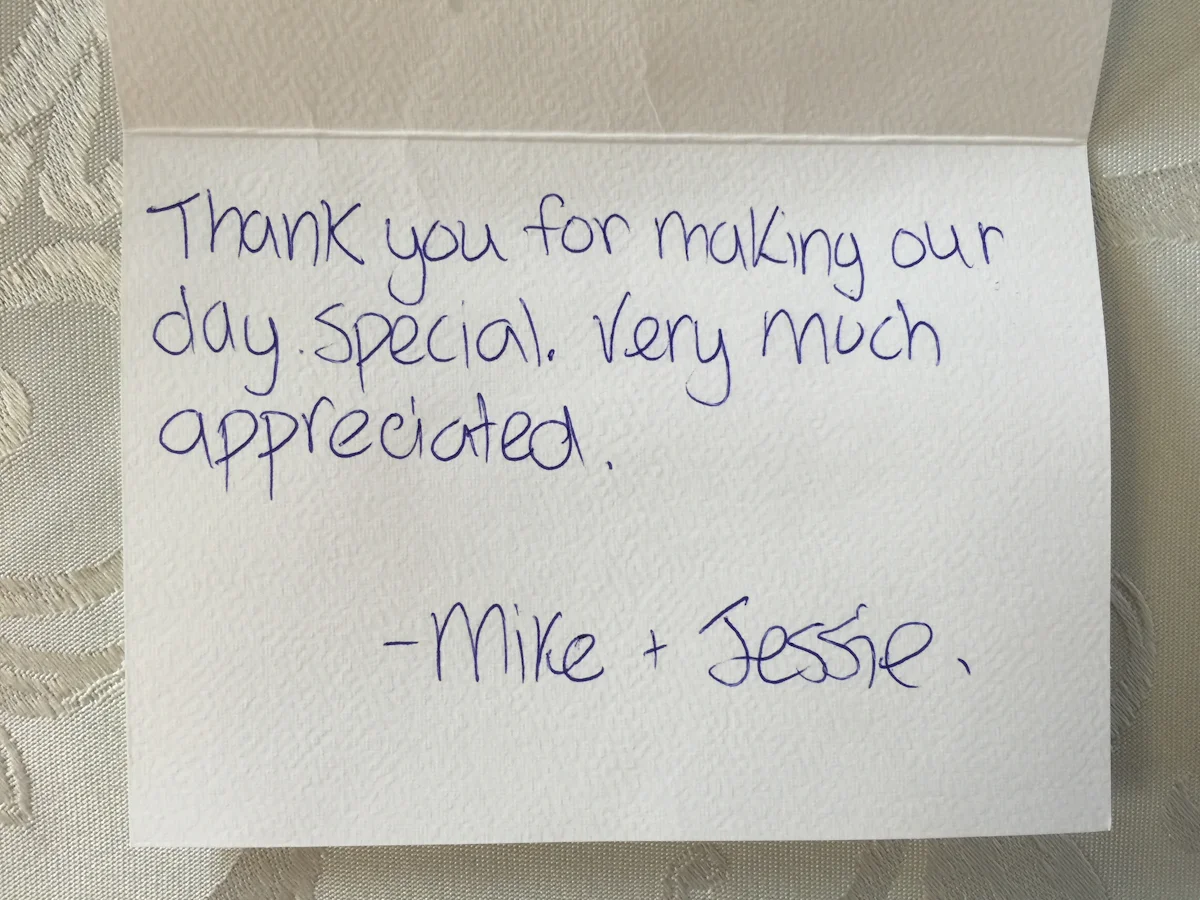 Thank you for making our
day special. Very much
appreciated.
- Mike + Jessie.